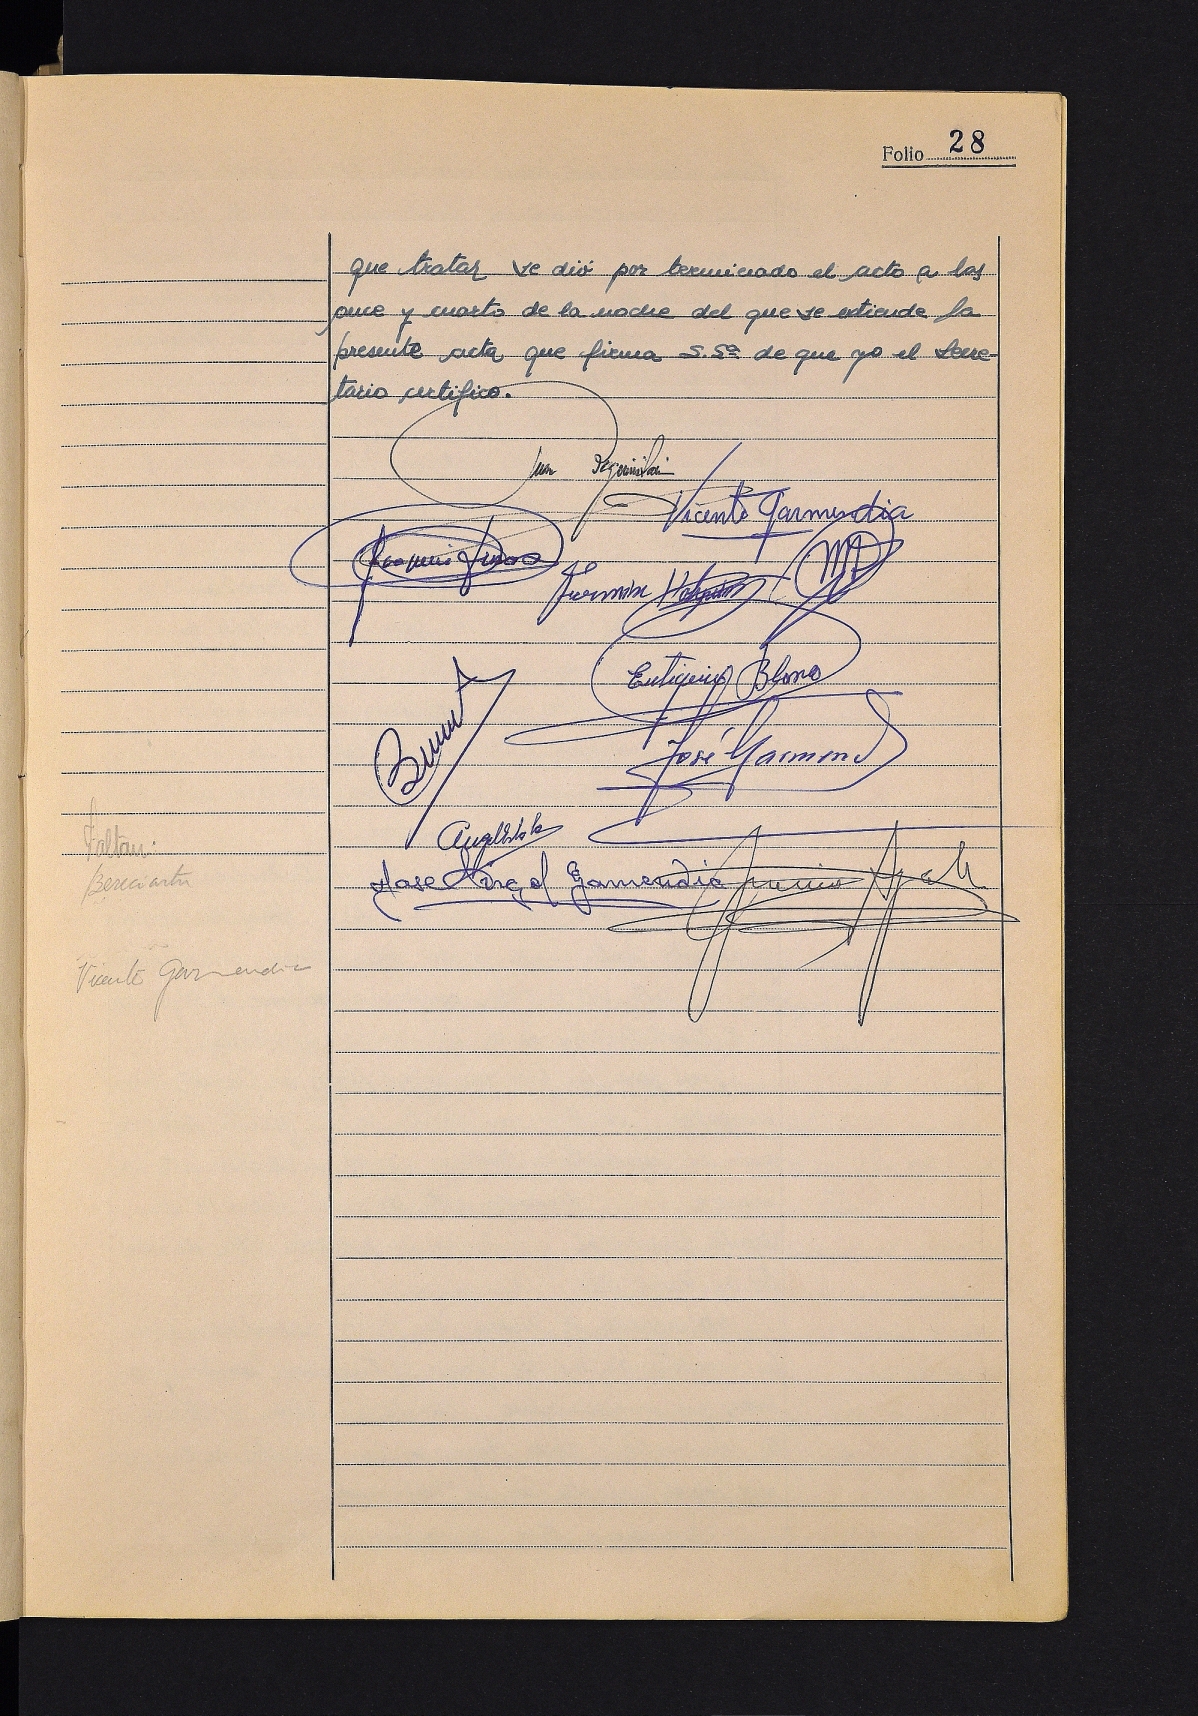 Folio 28
que tratar se dió por terminado el acto a las
once y cuarto de la noche del que se extiende la
presente acta que firma S.Sª de que yo el Secre-
tario certifico.
Juan
Vicente Garmendia
Joaquin
Fermin
Eutiquio Blanco
José Garmend
Faltan:
Bereciartu
Jose Angel Garmendia
Vicente Garmendia